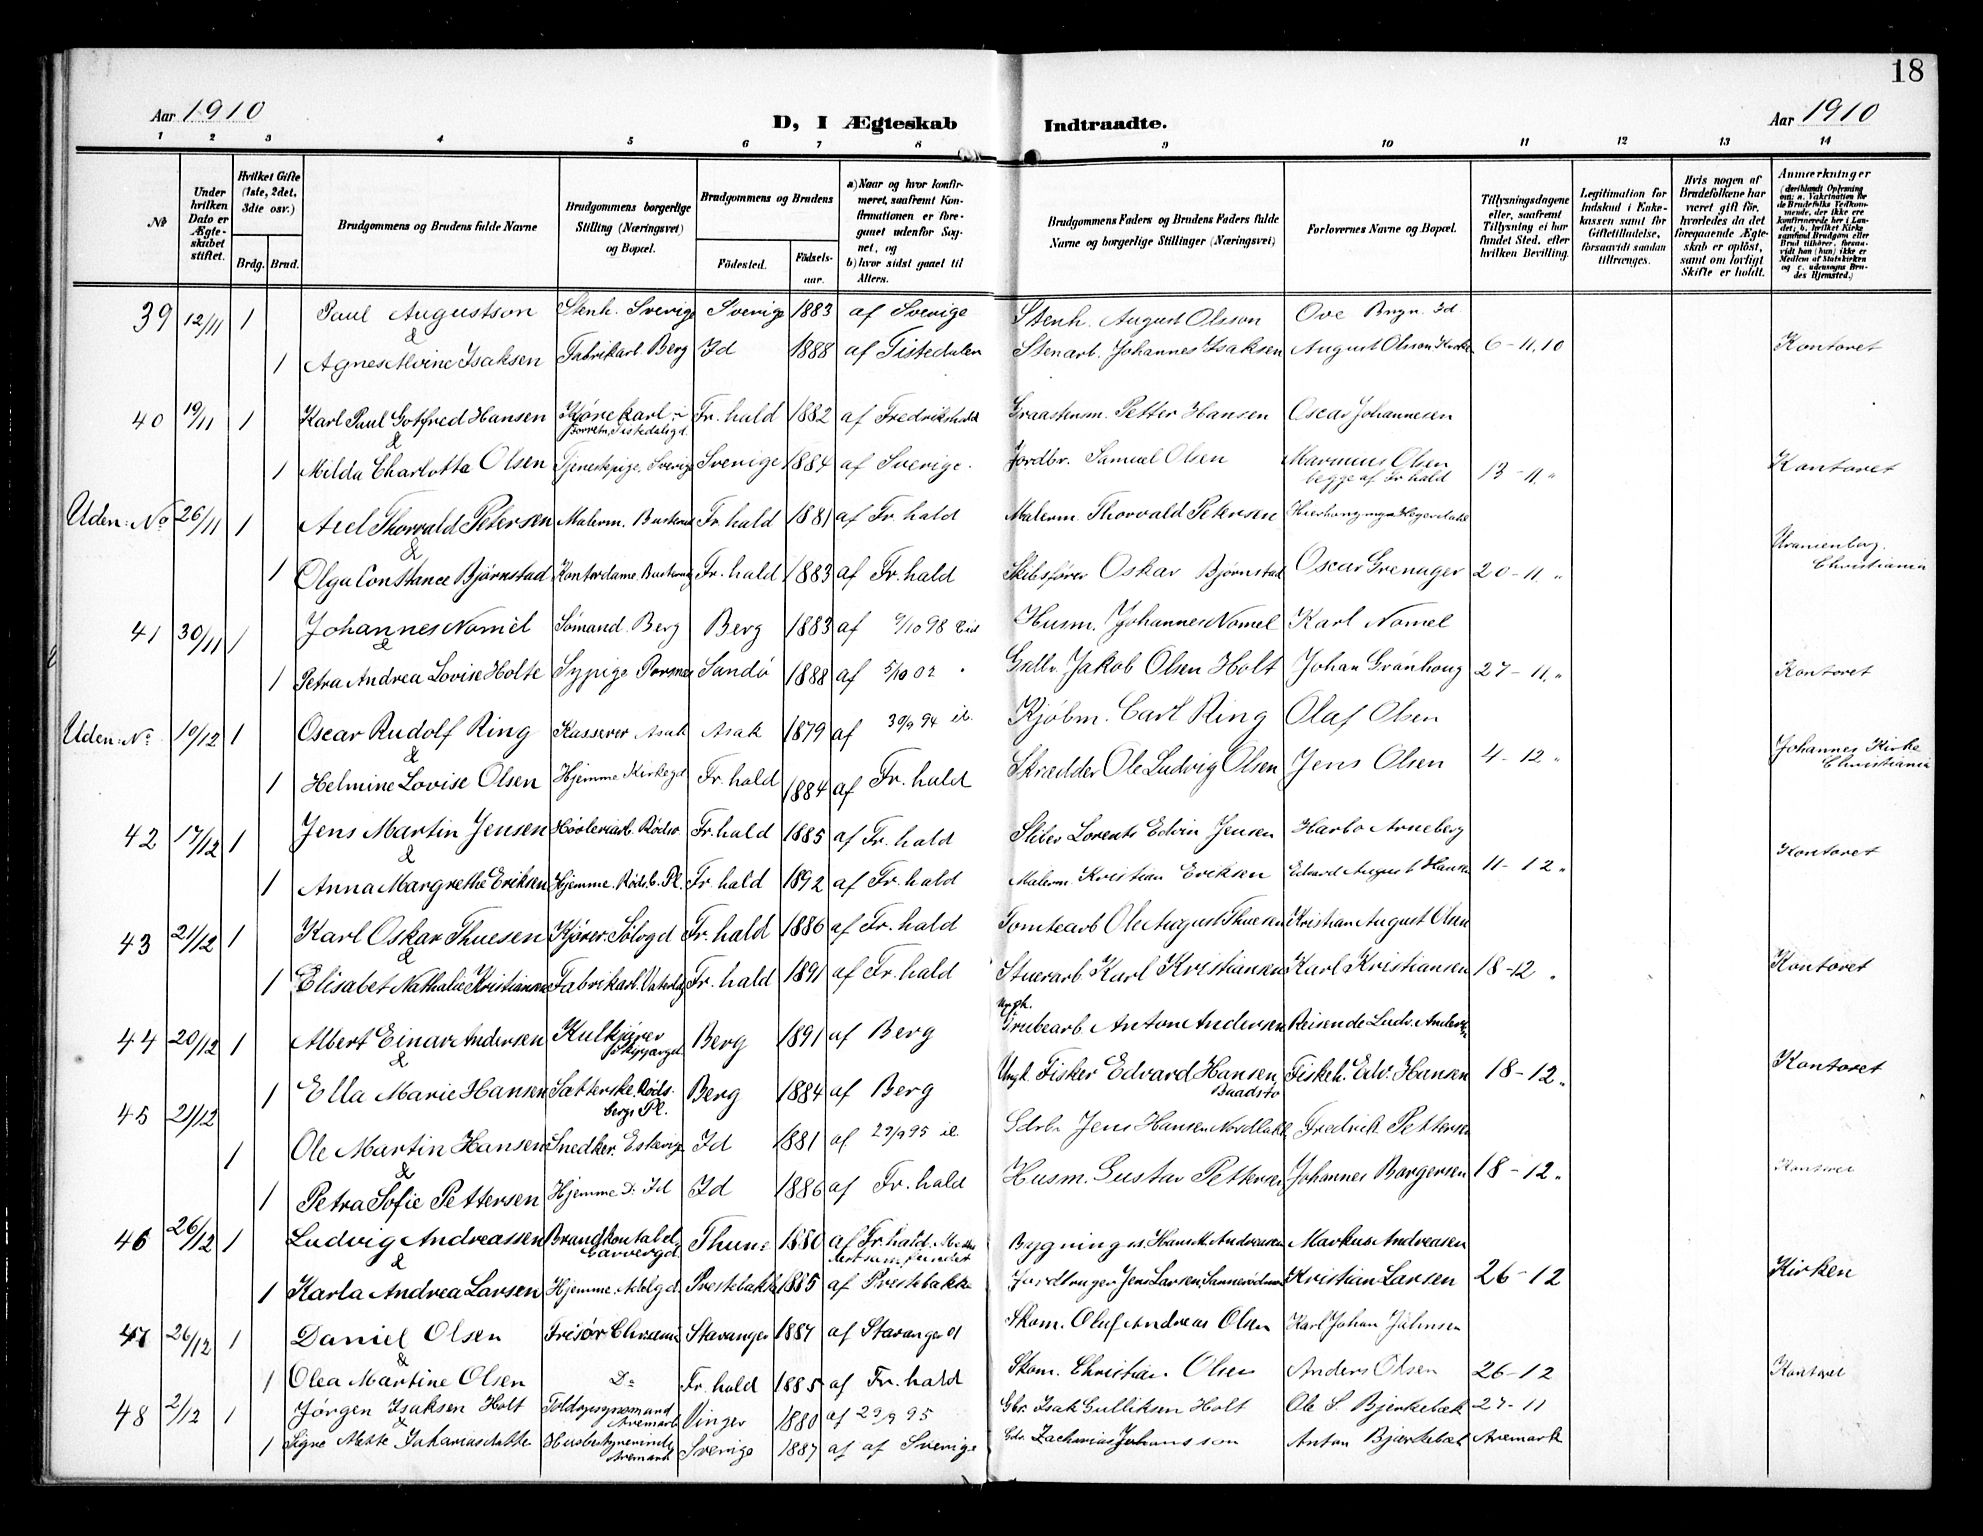 18
Aar 1910
D, I Ægteskab Indtraadte.
Aar 1910
1 2 3 4 5 6 7 8 9 10 11 12 13 14
№
Under hvilken Dato er Ægteskabet stiftet.
Hvilket Gifte (1ste, 2det, 3die osv.)
Brdg. Brud.
Brudgommens og Brudens fulde Navne
Brudgommens borgerlige Stilling (Næringsvei) og Bopæl.
Brudgommens og Brudens
Födested.
Födselsaar.
a) Naar og hvor konfirmeret, saafremt Konfirmationen er foregaaet udenfor Sognet, og
b) hvor sidst gaaet til Alters.
Brudgommens Faders og Brudens Faders fulde Navne og borgerlige Stillinger (Næringsvei)
Forlovernes Navne og Bopæl.
Tillysningsdagene eller, saafremt Tillysning ei har fundet Sted, efter hvilken Bevilling.
Legitimation for Indskud i Enkekassen samt for Giftetilladelse, forsaavidt saadan tiltrænges.
Hvis nogen af Brudefolkene har været gift før, hvorledes da det foregaaende Ægteskab er oplöst, samt om lovligt Skifte er holdt.
Anmærkninger
39 12/11 1 Paul Augustson Stenh. Sverige Sverige 1883 af Sverige Stenh. August Olsson Ove Id
&
1 Agnes Alvine Isaksen Fabrikarb Berg Id 1888 af Tistedalen Stenarb. Johannes Isaksen August Olsson 6-11.10 Kontoret
40 19/11 1 Karl Paul Gotfred Hansen Kjørekarl i Fr. hald 1882 af Fredrikshald Graastensm. Petter Hansen Oscar Johannesen
&
1 Milda Charlotta Olsen Tjenestpige, Sverige Sverige 1884 af Sverige. Jordbr. Samuel Olsen Olsen begge af Fr hald 13-11 " Kontoret
Uden: No 26/11 1 Axel Thorvald Petersen Malerm. Fr. hald 1881 af Fr. hald Malerm. Thorvald Petersen
&
1 Olga Constance Bjørnstad Kontordame Fr. hald 1883 af Fr. hald Skibsfører Oskar Bjørnstad Oscar Grenager 20-11 " Uranienborg, Christiania
41 30/11 1 Johannes Nomel Sømand. Berg Berg 1883 af 9/10 98 Husm. Johannes Nomel Karl Nomel
&
1 Petra Andrea Lovise Holte Sypige Sandö 1888 af 5/10 02 Jakob Olsen Holt Johan Grönhoug 27-11 " Kontoret
Uden: No 10/12 1 Oscar Rudolf Ring Kasserer Asak Asak 1879 af 30/9 94 Kjöbm. Carl Ring Olaf Olsen
&
1 Helmine Lovise Olsen Hjemme Kirkegd Fr. hald 1884 af Fr. hald Skrædder Ole Ludvig Olsen Jens Olsen 4-12 " Johannes Kirke Christiania
42 17/12 1 Jens Martin Jensen Høvleriarb. Rödsv Fr. hald 1885 af Fr. hald Lorents Edvin Jensen Arneberg
&
1 Anna Margrethe Eriksen Hjemme. Rødsb. Pl. Fr. hald 1892 af Fr. hald Malerm Kristian Eriksen Edvard August Hansen 11-12 " Kontoret
43 21/12 1 Karl Oskar Thuesen Kjører. Fr. hald 1886 af Fr. hald Tomtearb Ole August Thuesen Kristian August Olsen
&
1 Elisabet Nathalie Kristiansen Fabrikarb. Fr. hald 1891 af Fr. hald Stuerarb Karl Kristiansen Karl Kristiansen 18-12 " Kontoret
44 20/12 1 Albert Einar Andersen Kulkjører Berg 1891 af Berg Ungk. Grubearb Anton Andersen Reisende Ludv. Andersen
&
1 Ella Marie Hansen Sætterske, Rödsbergs Pl. Berg 1884 af Berg Ungk. Fisker Edvard Hansen Baadstö Fiskeh. Edv. Hansen 18-12 " Kontoret
45 21/12 1 Ole Martin Hansen Snedker. Id 1881 af 29/9 95 Gdrbr Jens Hansen Fredrick Pettersen
&
1 Petra Sofie Pettersen Hjemme Do Id Id 1886 af Fr. hald Husm. Gustav Pettersen Johannes Borgersen 18-12 " Kontoret
46 26/12 1 Ludvig Andreassen Brandkontabel, Thune 1880 af Fr. hald Bygnings. Hans M. Andreasen Markus Andreasen
&
1 Karla Andrea Larsen Hjemme. Prestebakke 1885 af Prestebakke Jens Larsen Kristian Larsen 26-12 Kirken
47 26/12 1 Daniel Olsen Frisør Stavanger 1887 af Stavanger 01 Skom. Oluf Andreas Olsen Karl Johan
&
1 Olea Martine Olsen Do Fr. hald 1885 af Fr. hald Skom. Christian Olsen Anders Olsen 26-12 Kontoret
48 2/12 1 Jørgen Isaksen Holt Toldopsynsmand Aremark Vinger 1880 af 29/9 95 Gbr. Isak Gulliksen Holt Ole S. Bjerkebæk 27-11
&
1 Signe Mette Husbestyrerinde Aremark Sverige 1887 af af Sverige Gdr. Zacharias Johansson Anton Bjerkebæk Aremark